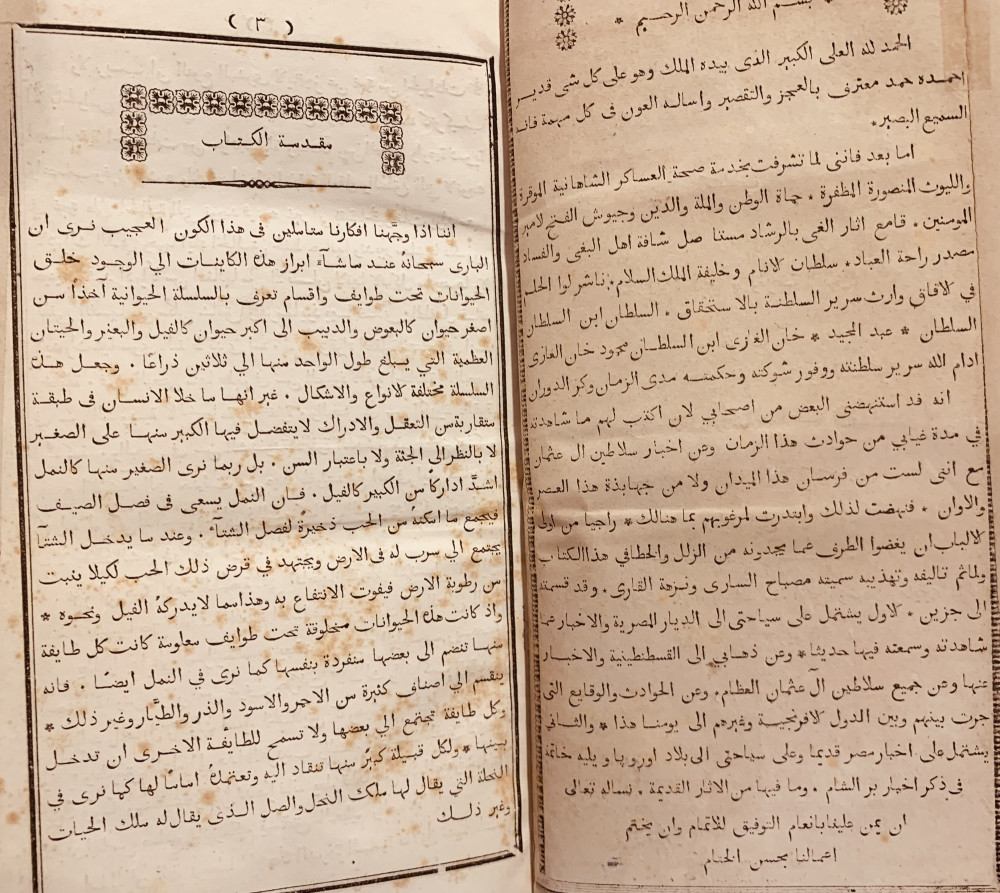 بسم الله الرحمن الرحيم
الحمد لله العلى الكبير الذى بيده الملك وهو على كل شى قدير
احمده حمد معترف بالعجز والتقصير واساله العون فى كل مهمة فانه
السميع البصير٭
اما بعد فاننى لما تشرفت بخدمة صحة العساكر الشاهانية الموقرة
والليوث المنصورة المظفرة ٭ حماة الوطن والملة والدين وجيوش الفخ لامير
المومنين ٭ قامع اثار الغى بالرشاد مستاصل شافة اهل البغى والفساد
مصدر راحة العباد٭ سلطان الانام وخليفة الملك السلام٭ ناشر لوا الحلم
في الافاق وارث سرير السلطنة بالاستحقاق ٭ السلطان ابن السلطان
السلطان ٭ عبد المجيد ٭ خان الغازى ابن السلطان محمود خان الغازى
ادام الله سرير سلطنته ووفور شوكته وحكمته مدى الزمان وكز الدوران
انه قد استنهضنى البعض من اصحابي لان اكتب لهم ما شاهدته
في مدة غيابي من حوادث هذا الزمان وعن اخبار سلاطين ال عثمان
مع اننى لست من فرسان هذا الميدان ولا من جهابذة هذا العصر
والاوان ٭ فنهضت لذلك وابتدرت لمرغوبهم بما هنالك٭ راجيا من اولى
الالباب ان يغضوا الطرف عما يجدونه من الزلل والخطا في هذا الكتاب
ولما تم تاليفه وتهذيبه سميته مصباح السارى ونزهة القارى ٭ وقد قسمته
الى جزين ٭ الاول يشتمل على سياحتى الى الديار المصرية والاخبار عما
شاهدته وسمعته فيها حديثا٭ وعن ذهابي الى القسطنطينية والاخبار
عنها وعن جميع سلاطين ال عثمان العظام٭ وعن الحوادث والوقايع التى
جرت بينهم وبين الدول الافرنجية وغيرهم الى يومنا هذا ٭ والثانى
يشتمل على اخبار مصر قديما وعلى سياحتى الى بلاد اوروپا ويليه خاتمة
فى ذكر اخبار بر الشام ٭ وما فيها من الاثار القديمة ٭ نساله تعالى
ان يمن علينا بانعام التوفيق للاتمام وان يختم
اعمالنا بحسن الختام
( ٣ )
مقدمة الكتاب
اننا اذا وجَّهنا افكارنا متاملين فى هذا الكون العجيب نرى ان
البارى سبحانهُ عند ما شآء ابراز هذه الكاينات الي الوجود خلق
الحيوانات تحت طوايف واقسام تعرف بالسلسلة الحيوانية آخذًا من
اصغر حيوان كالبعوض والدبيب الى اكبر حيوان كالفيل والبعير والحيتان
العظمية التي يبلغ طول الواحد منها الي ثلاثين ذراعًا ٭ وجعل هذه
السلسلة مختلفة الانواع والاشكال ٭ غير انها ما خلا الانسان فى طبقة
متقاربة من التعقل والادراك لا يتفضل فيها الكبير منها على الصغير
لا بالنظر الي الجثة ولا باعتبار السن ٭ بل ربما نرى الصغير منها كالنمل
اشدَّ اداركًا من الكبير كالفيل ٭ فان النمل يسعى فى فصل الصيف
فيجمع ما امكنه من الحب ذخيرةً لفصل الشتآء ٭ وعند ما يدخل الشتآ
يجتمع الي سرب له فى الارض ويجتهد في قرض ذلك الحب لكيلا ينبت
من رطوبة الارض فيفوت الانتفاع به وهذا مما لا يدركهُ الفيل ونحوه ٭
واذ كانت هذه الحيوانات مخلوقة تحت طوايف معلومة كانت كل طايفة
منها تنضم الى بعضها منفردة بنفسها كما نرى في النمل ايضًا ٭ فانه
ينقسم الي اصناف كثيرة من الاحمر والاسود والذر والطيَّار وغير ذلك ٭
وكل طايفة تجتمع الي بعضها ولا تسمح للطايفة الاخرى ان تدخل
بينها٭ ولكل قبيلة كبيرٌ منها تنقاد اليه وتعتمدهُ اساسًا لها كما نرى في
النحلة التي يقال لها ملكت النحل والصل الذى يقال له ملك الحيات
وغير ذلك